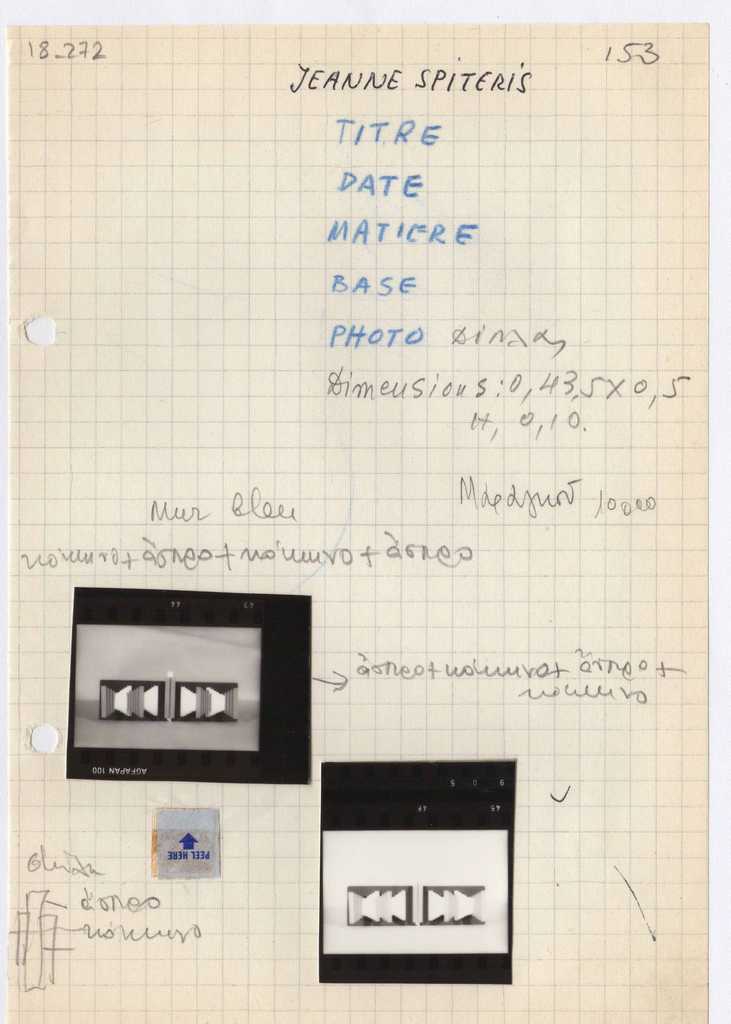 18_272
153
JEANNE SPITERIS
TITRE
DATE
MATIERE
BASE
PHOTO
Dimensions: 0,43,5 x 0,5
H, 0,10.
Μαραγκού 10000
Mur bleu
κόκκινο + άσπρο + κόκκινο + άσπρο
44 43
→ άσπρο + κόκκινο + άσπρο +
κόκκινο
AGFAPAN 100
9 0 5
45
PEEL HERE
άσπρο
κόκκινο